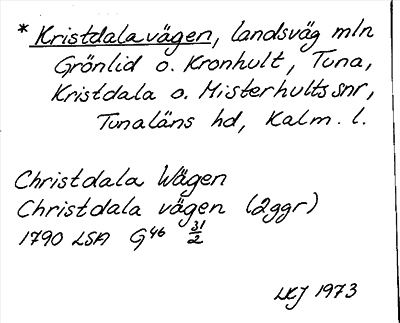 * Kristdalavägen, landsväg mln
Grönlid o. Kronhult, Tuna,
Kristdala o. Misterhults snr,
Tunaläns hd, Kalm. l.
Christdala Wägen
Christdala vägen (2ggr)
1790 LSA G46 31/2
LKJ 1973